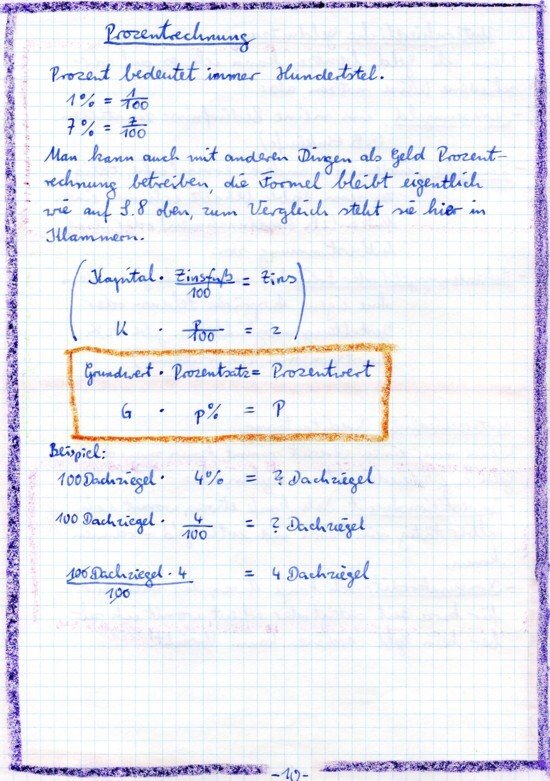 Prozentrechnung
Prozent bedeutet immer Hundertstel.
1% = 1/100
7% = 7/100
Man kann auch mit anderen Dingen als Geld Prozent-
rechnung betreiben, die Formel bleibt eigentlich
wie auf S. 8 oben, zum Vergleich steht sie hier in
Klammern.
(Kapital · Zinsfuß/100 = Zins)
K · p/100 = z
Grundwert · Prozentsatz = Prozentwert
G · p% = P
Beispiel:
100 Dachziegel · 4% = ? Dachziegel
100 Dachziegel · 4/100 = ? Dachziegel
100 Dachziegel · 4/100 = 4 Dachziegel